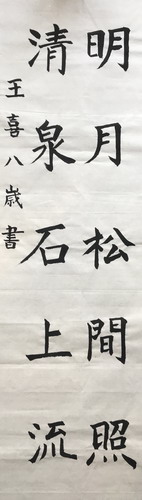 明月松間照
清泉石上流
王喜八歳書